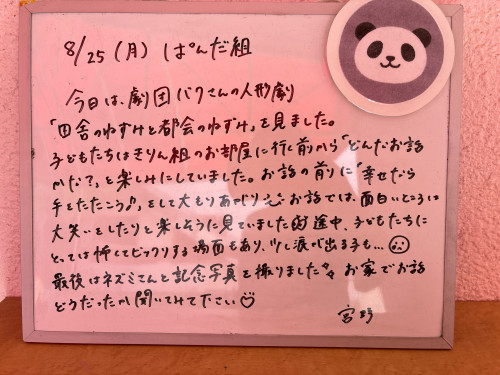 8/25 (月) ぱんだ組
今日は、劇団バクさんの人形劇
「田舎のねずみと都会のねずみ」を見ました。
子どもたちはきりん組のお部屋に行く前から「どんなお話
かな?」と楽しみにしていました。お話の前に「幸せなら
手をたたこう♪」をして大もりあがり お話では、面白いところに
大笑いをしたりと楽しそうに見ていました 途中、子どもたちに
とっては怖くてビックリする場面もあり、少し涙が出る子も…
最後はネズミさんと記念写真を撮りました お家でお話
どうだったか聞いてみて下さい♡
宮野